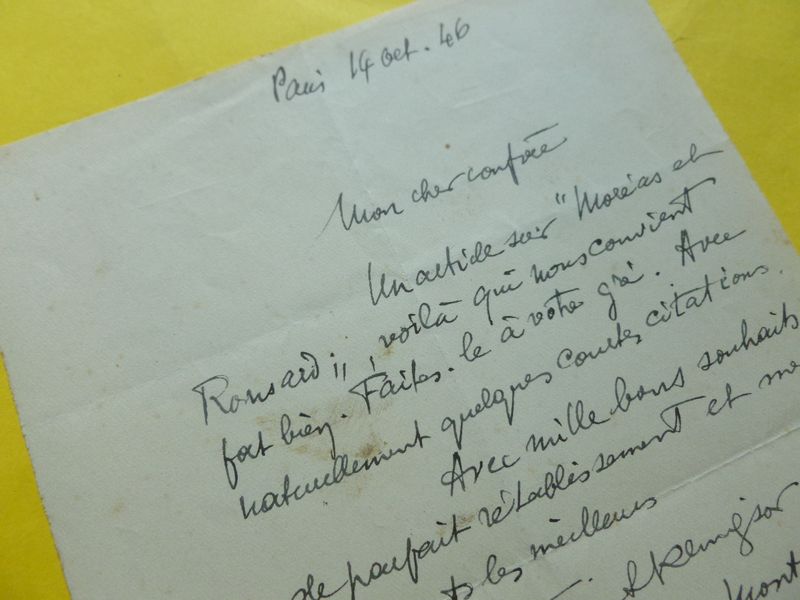 Paris 14 Oct. 46
Mon cher confrère
Un article sur "Moréas et
Ronsard", voilà qui nous convient
fort bien. Faites-le à votre gré. Avec
naturellement quelques courtes citations.
Avec mille bons souhaits
de parfait rétablissement et me
ts les meilleurs
Mont